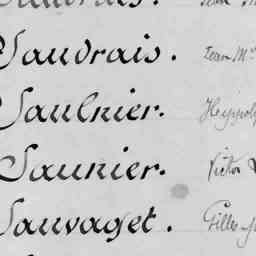 Saudrais. Jean M
Saulnier. Heyppoly
Saunier. Victor
Sauvaget. Gilles